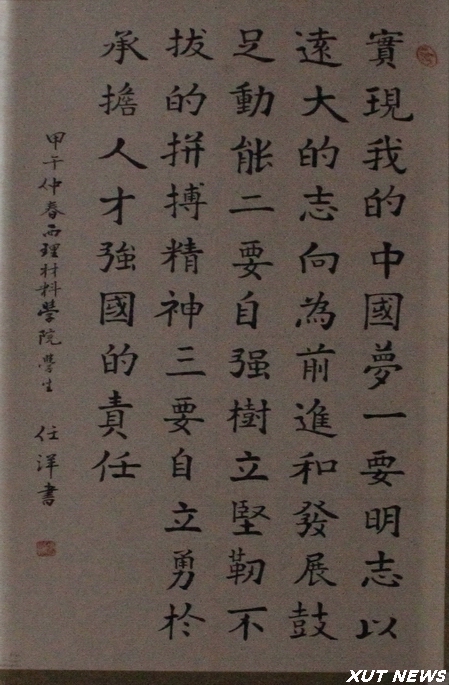 實現我的中國夢一要明志以
遠大的志向為前進和發展鼓
足動能二要自强樹立堅韌不
拔的拼搏精神三要自立勇於
承擔人才強國的責任
甲午仲春西理材料學院學生 任洋書
XUT NEWS